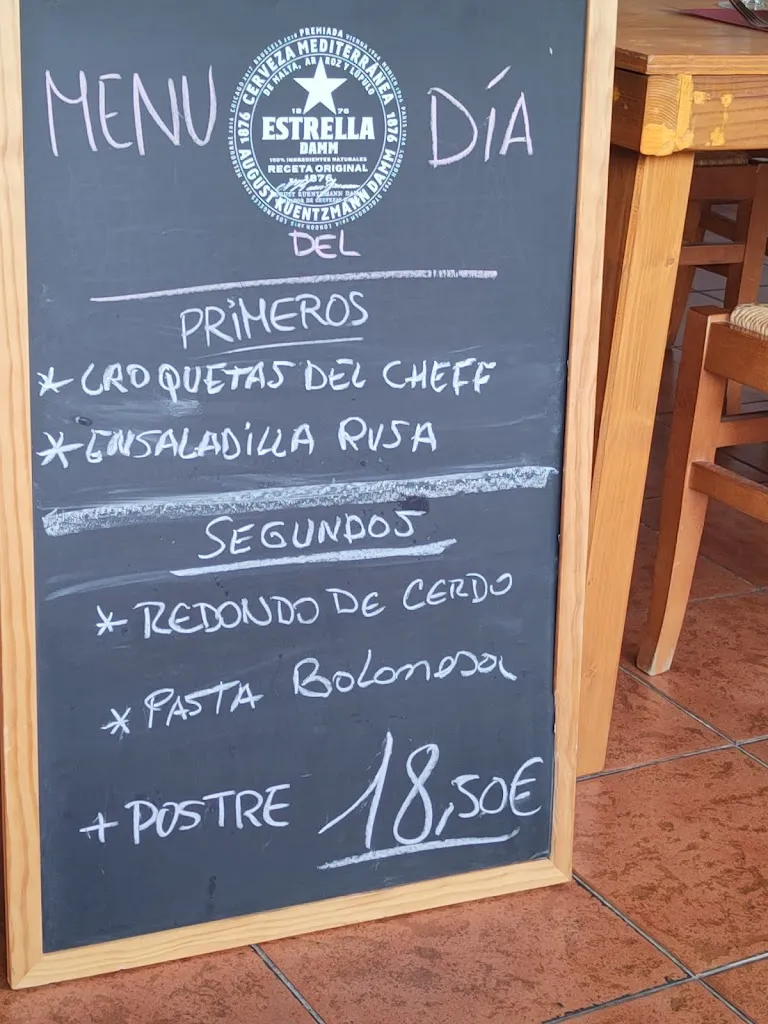 MENU DÍA
PREMIADA
CERVEZA MEDITERRÁNEA
DE MALTA, ARROZ Y LÚPULO
1876 1876
ESTRELLA
DAMM
100% INGREDIENTES NATURALES
RECETA ORIGINAL
1876
AUGUST KUENTZMANN DAMM
DEL
PRIMEROS
* CROQUETAS DEL CHEFF
* ENSALADILLA RUSA
SEGUNDOS
* REDONDO DE CERDO
* PASTA Bolonesa
+ POSTRE 18,50€